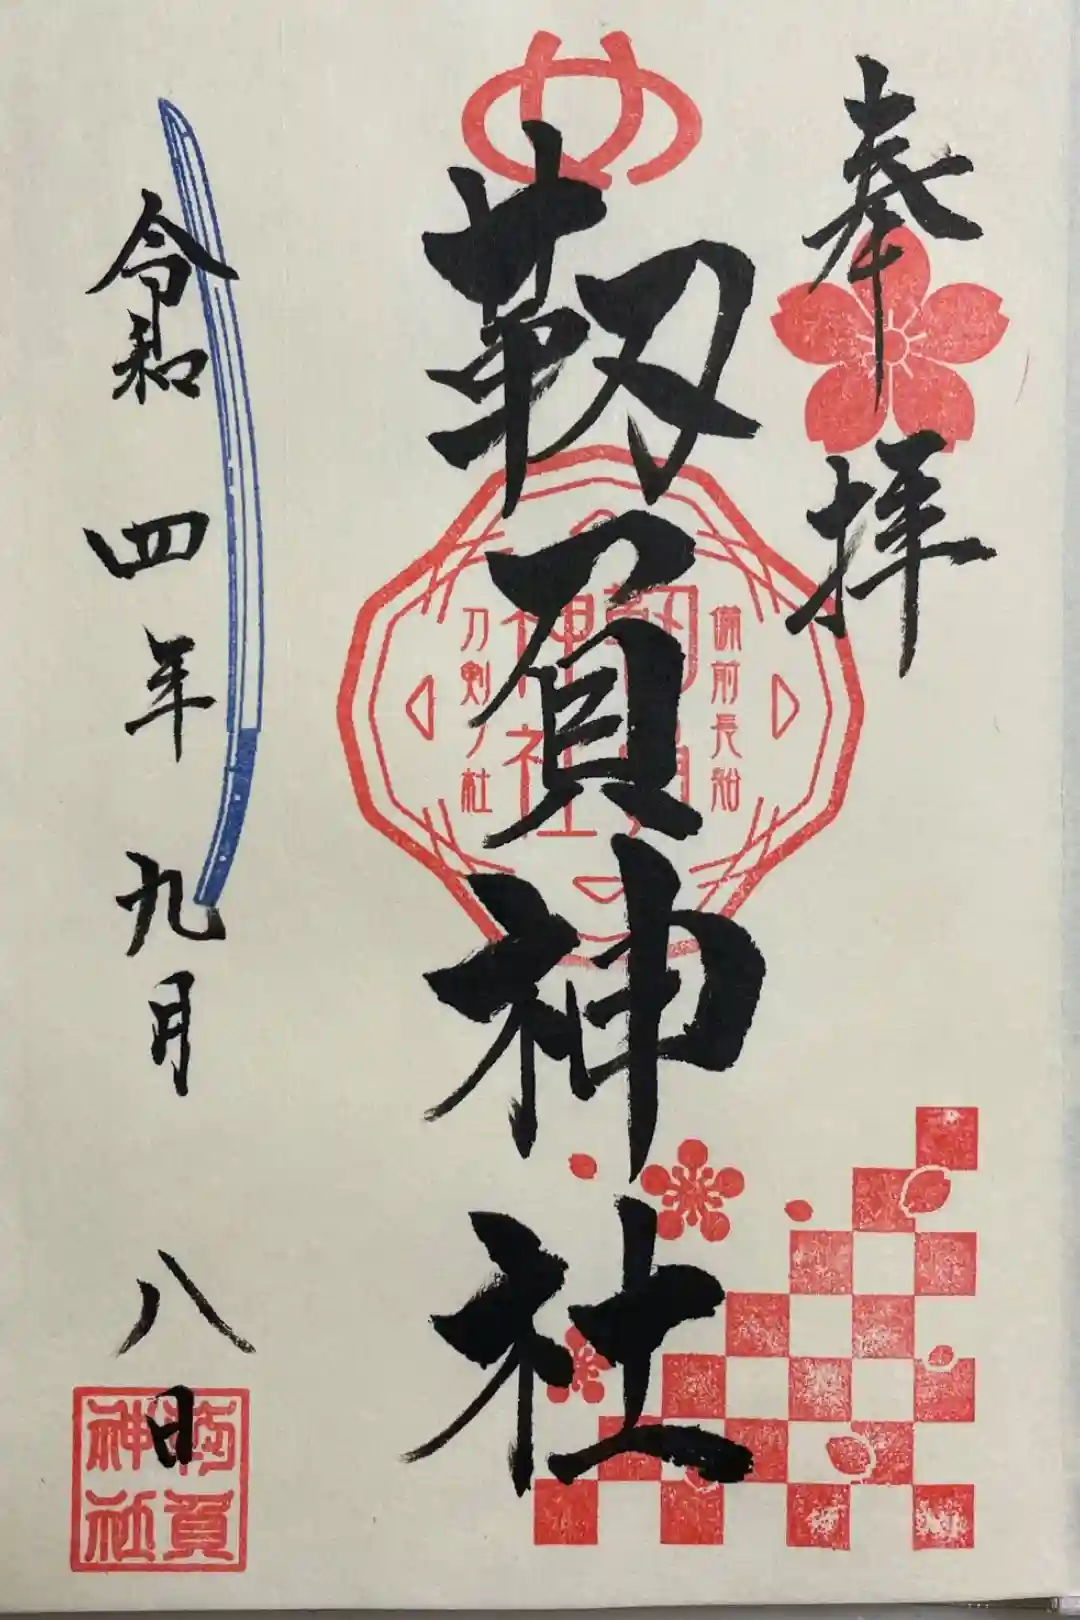 奉拝
備前長船
靱負神社
靱負神社
刀剣ノ社
令和四年九月八日
靱負神社